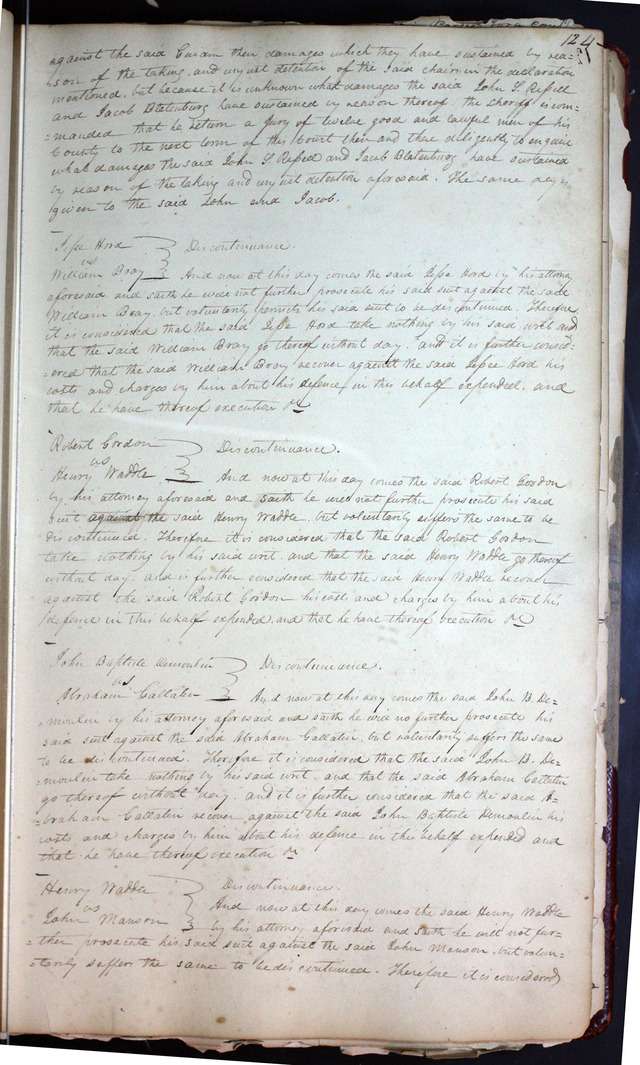 124
against the said Curam their damages which they have sustained by rea=
=son of the taking and unjust detention of the said chairs in the declaration
mentioned, but because it is unknown what damages the said John S. Refeld
and Jacob Blatenburg have sustained by reason thereof. the Sheriff is com=
=manded that he return a Jury of twelve good and lawful men of his
County to the next term of this Court then and there diligently to enquire
what damages the said John S Refeld and Jacob Blatenburg have sustained
by reason of the taking and unjust detention aforesaid. The same day is
given to the said John and Jacob.
Jesse Hord
vs
William Bray
Discontinuance.
And now at this day comes the said Jesse Hord by his attorney
aforesaid and saith he will not further prosecute his said suit against the said
William Bray, but voluntarily permits his said suit to be discontinued. Therefore
it is considered that the said Jesse Hord take nothing by his said writ and
that the said William Bray go thereof without day. and it is further consid=
=ered that the said William Bray recover against the said Jesse Hord his
costs and charges by him about his defence, in this behalf expended, and
that he have thereof execution &c
Robert Gordon
vs
Henry Waddle
Discontinuance.
And now at this day comes the said Robert Gordon
by his attorney aforesaid and saith he will not further prosecute his said
suit against the said Henry Waddle, but voluntarily suffers the same to be
discontinued. Therefore it is considered that the said Robert Gordon
take nothing by his said writ, and that the said Henry Waddle go thereof
without day. and is further considered that the said Henry Waddle recover
against the said Robert Gordon his costs and charges by him about his
defence in this behalf expended, and that he have thereof execution &c
John Baptiste Demoulin
vs
Abraham Gallatin
Discontinuance.
And now at this day comes the said John B. De=
=moulin by his attorney aforesaid and saith he will no further prosecute his
said suit against the said Abraham Gallatin, but voluntarily suffers the same
to be discontinued. Therefore it is considered that the said John B. De=
=moulin take nothing by his said writ, and that the said Abraham Gallatin
go thereof without day. and it is further considered that the said A=
=braham Gallatin recover against the said John Batiste Demoulin his
costs and charges by him about his defence in this behalf expended and
that he have thereof execution &c
Henry Waddle
vs
John Manson
Discontinuance.
And now at this day comes the said Henry Waddle
by his attorney aforesaid and saith he will not fur=
=ther prosecute his said suit against the said John Manson, but volun=
=tarily suffers the same to be discontinued. Therefore it is considered